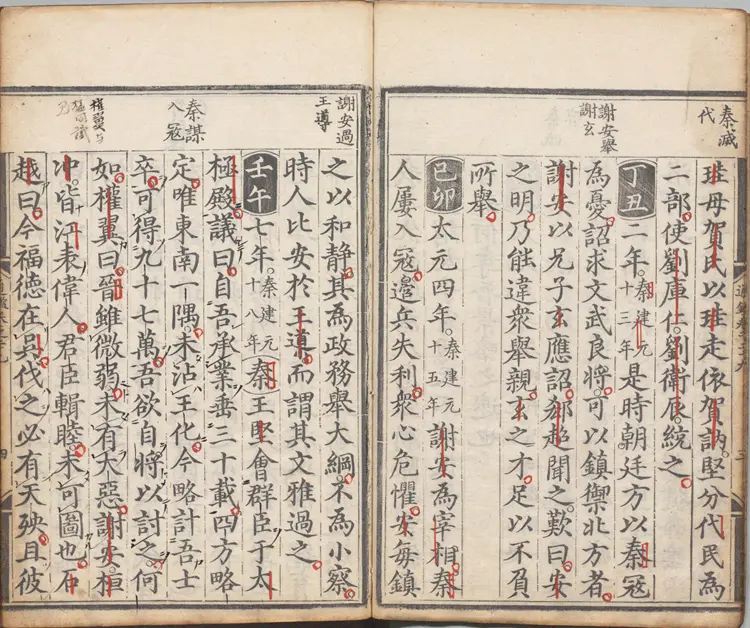 秦滅
代
珪母賀氏以珪走依賀訥堅分代民為
二部使劉庫仁劉衛辰統之
丁丑二年秦建元十三年是時朝廷方以秦寇
謝安舉
謝玄
為憂詔求文武良將可以鎮禦北方者
謝安以兄子玄應詔郗超聞之歎曰安
之明乃能違衆舉親玄之才足以不負
所舉
己卯太元四年秦建元十五年謝安為宰相秦
人屢入寇邊兵失利衆心危懼安每鎮
謝安過
王導
之以和靜其為政務舉大綱不為小察
時人比安於王導而謂其文雅過之
壬午七年秦建元十八年秦王堅會群臣于太
秦謀
入寇
極殿議曰自吾承業垂三十載四方略
定唯東南一隅未沾王化今略計吾士
卒可得九十七萬吾欲自將以討之何
如權翼曰晉雖微弱未有大惡謝安桓
冲皆江表偉人君臣輯睦未可圖也石
越曰今福德在吳伐之必有天殃且彼
四